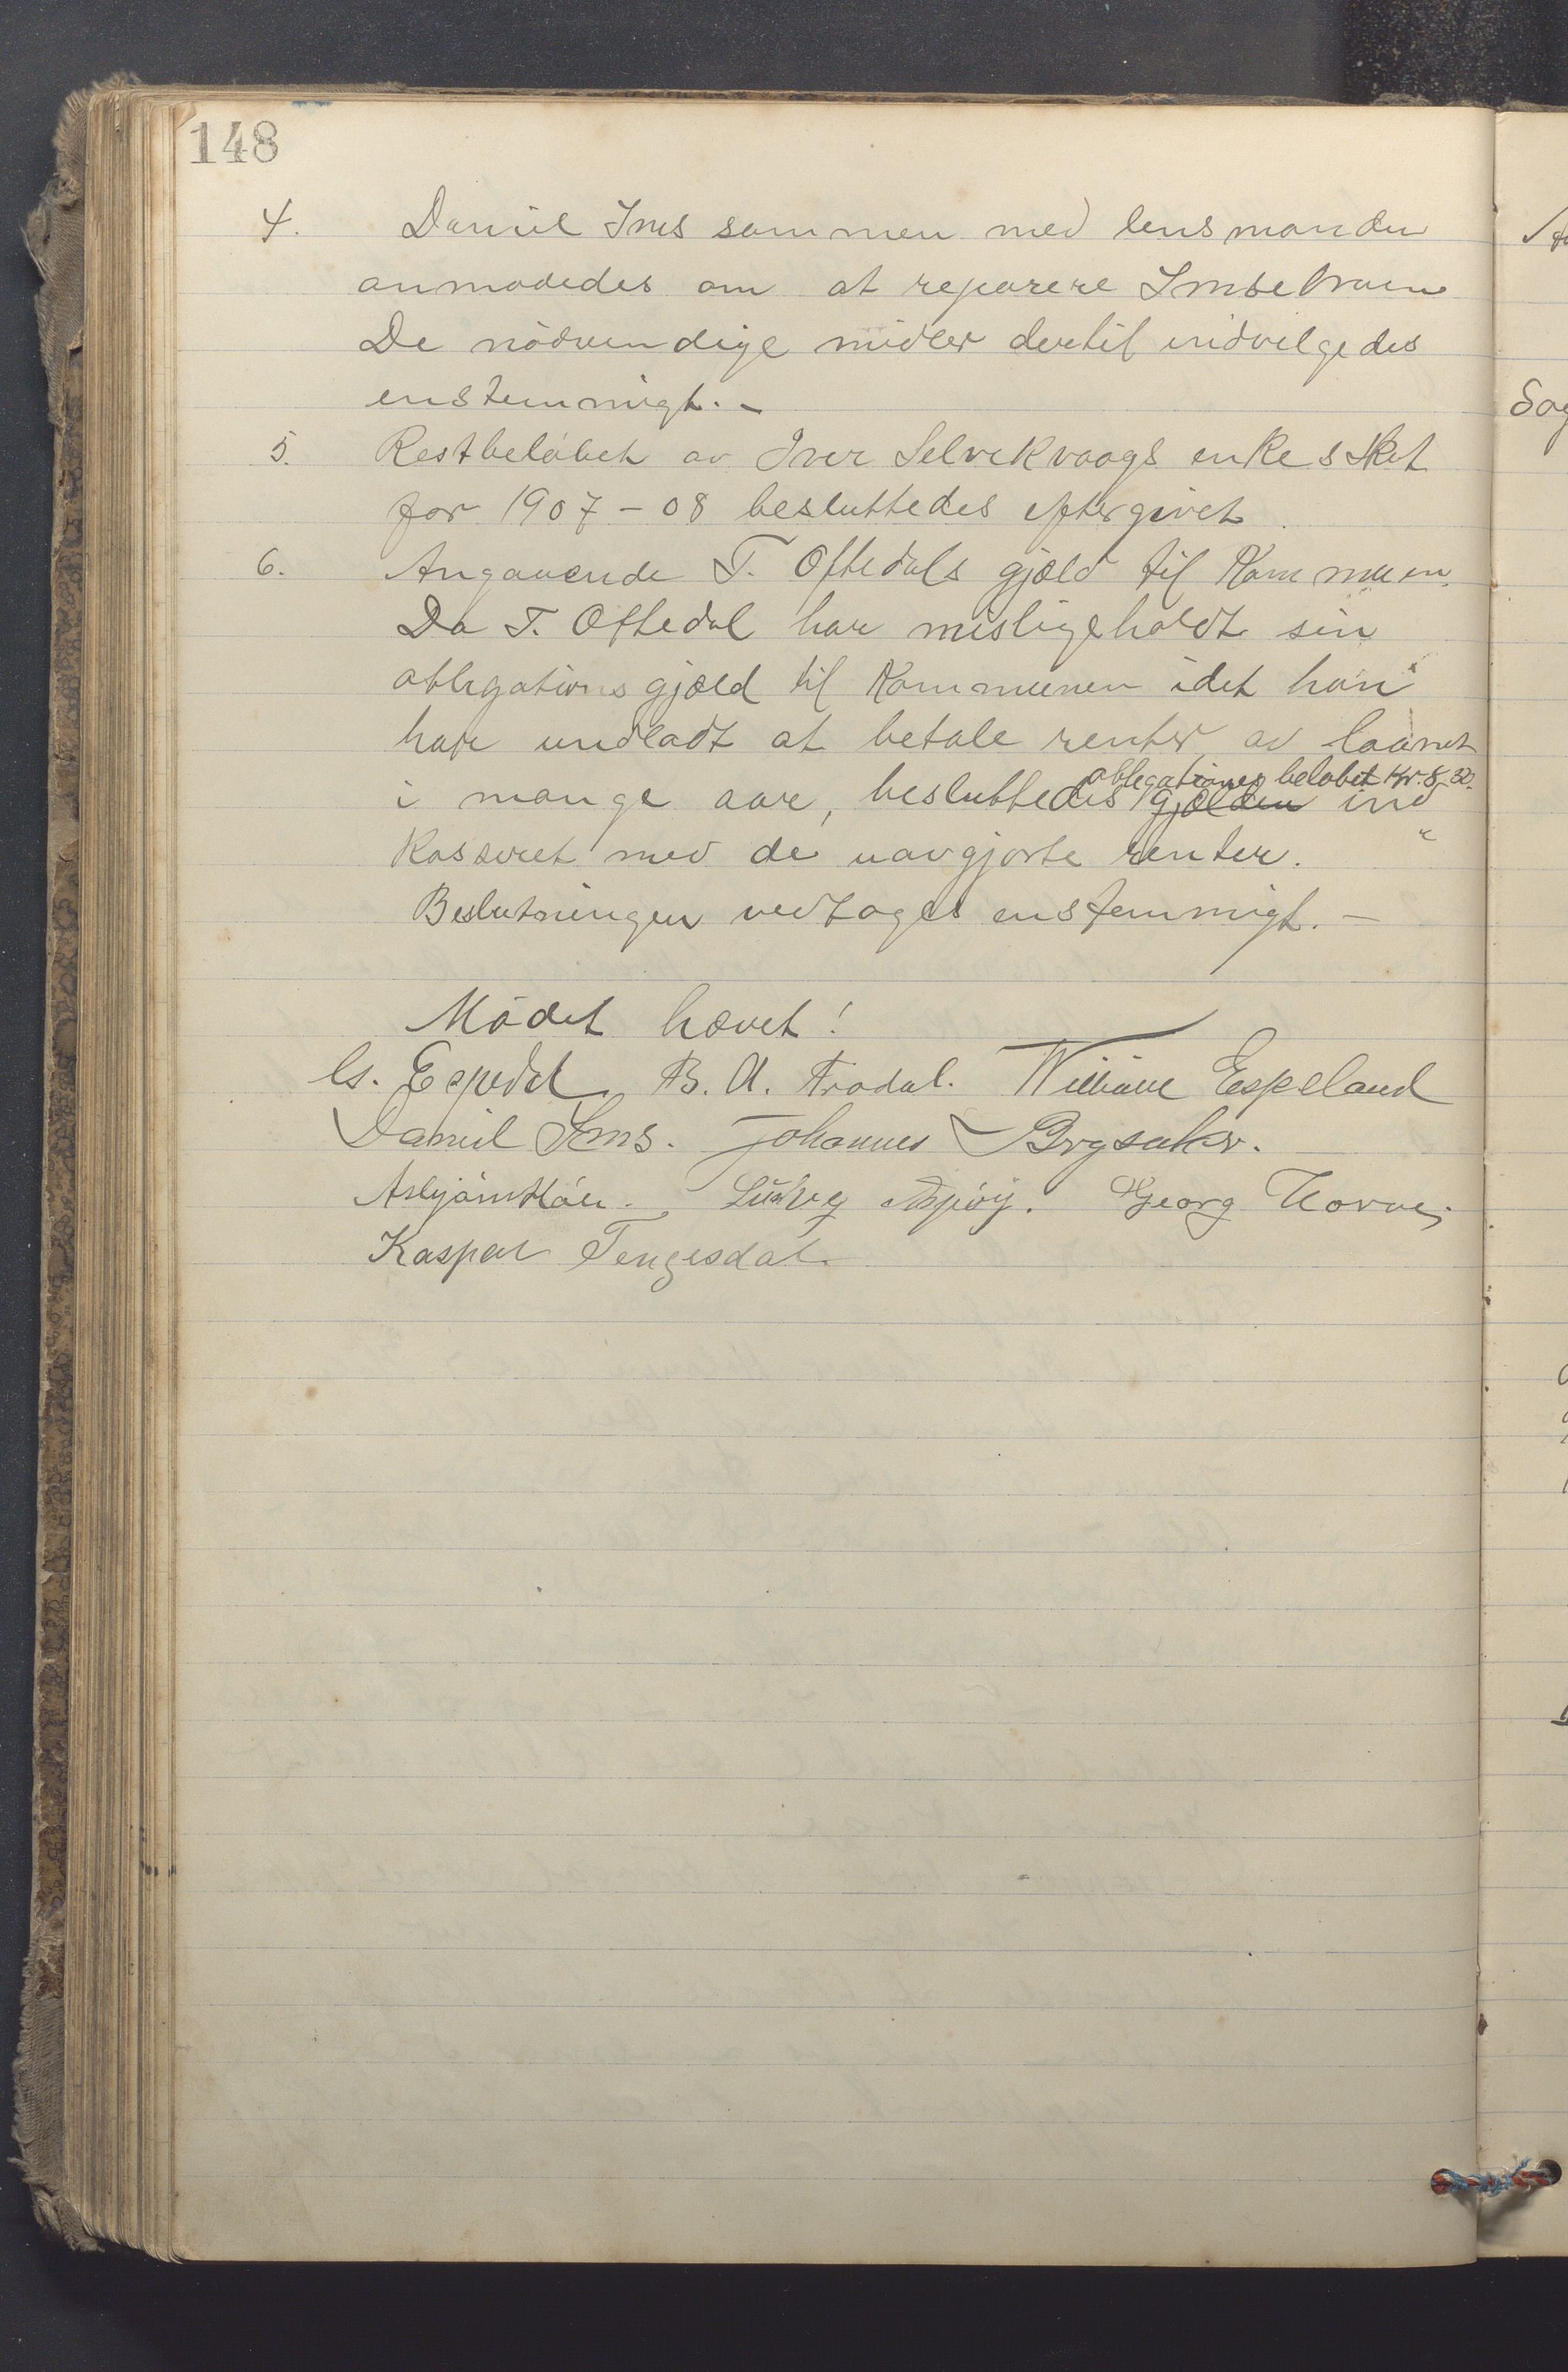 148
4. Daniel Ims sammen med lensmanden
anmodedes om at reparere Imsebroen
De nödvendige midler dertil indvilgedes
enstemmigt. -
5. Restbelöbet av Iver Selvikvaags enkes skat
for 1907-08 besluttedes eftergivet.
6. Angaaende T. Oftedals gjæld til Kommunen.
Da T. Oftedal har misligeholdt sin
obligations gjæld til Kommunen idet han
har undladt at betale renter av laanet
obligationes belöbet Kr. 8,30.
i mange aar, besluttedes gjælden ind
kasseret med de uavgjorte renter.
Beslutningen vedtages enstemmigt. -
Mödet hævet!
Espedal. B. A. Frodal. William Espeland
Daniel Ims. Johannes
Ludvig Georg
Kaspar Tengesdal.
Sag